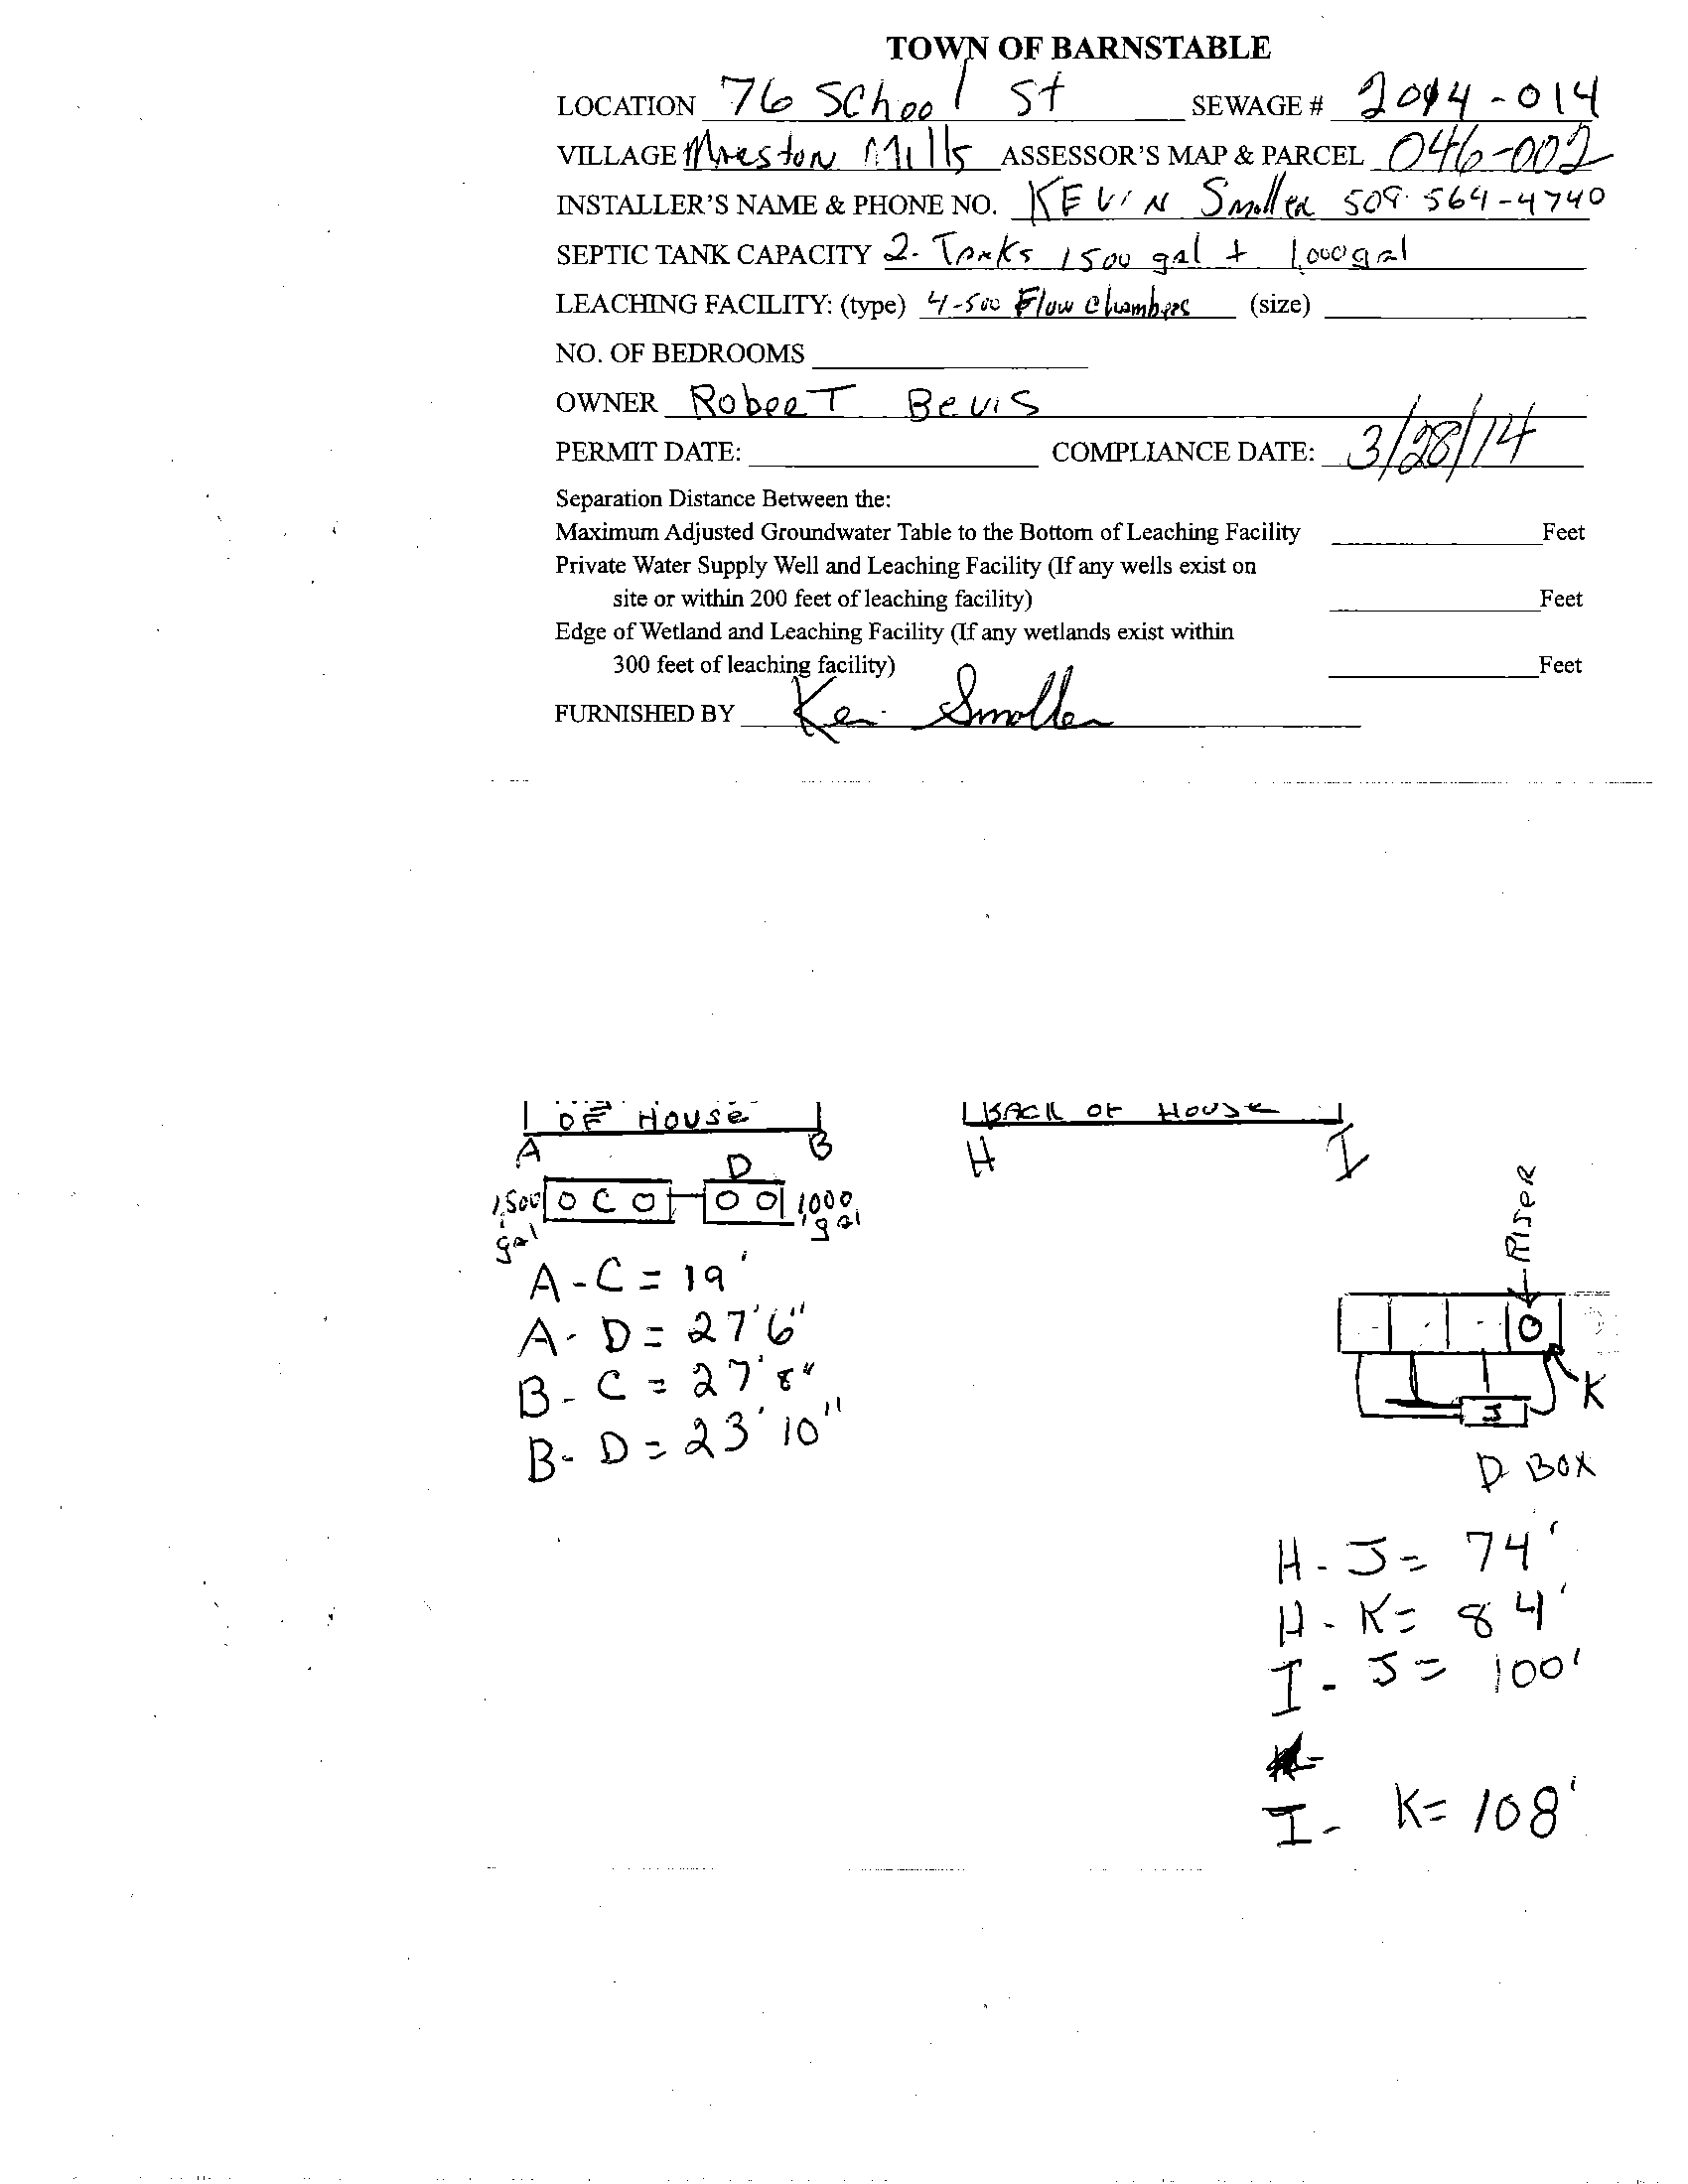 TOWN OF BARNSTABLE
LOCATION 76 School St SEWAGE # 2014-014
VILLAGE Mreston Mills ASSESSOR'S MAP & PARCEL 046-002
INSTALLER'S NAME & PHONE NO. KEVIN Smoller 508-564-4740
SEPTIC TANK CAPACITY 2-Tanks 1500 gal + 1,000 gal
LEACHING FACILITY: (type) 4-500 Flow Chambers (size)
NO. OF BEDROOMS
OWNER RobeRT BeviS
PERMIT DATE: COMPLIANCE DATE: 3/28/14
Separation Distance Between the:
Maximum Adjusted Groundwater Table to the Bottom of Leaching Facility Feet
Private Water Supply Well and Leaching Facility (If any wells exist on
site or within 200 feet of leaching facility) Feet
Edge of Wetland and Leaching Facility (If any wetlands exist within
300 feet of leaching facility) Feet
FURNISHED BY Smoller
OF House
BACK OF House
A B
H I
D
1,500 gal
O C O
O O
1000 gal
A-C = 19'
A-D = 27'6"
B-C = 27'8"
B-D = 23'10"
Riser
O
K
J
D BOX
H-J = 74'
H-K = 84'
I-J = 100'
I-K = 108'